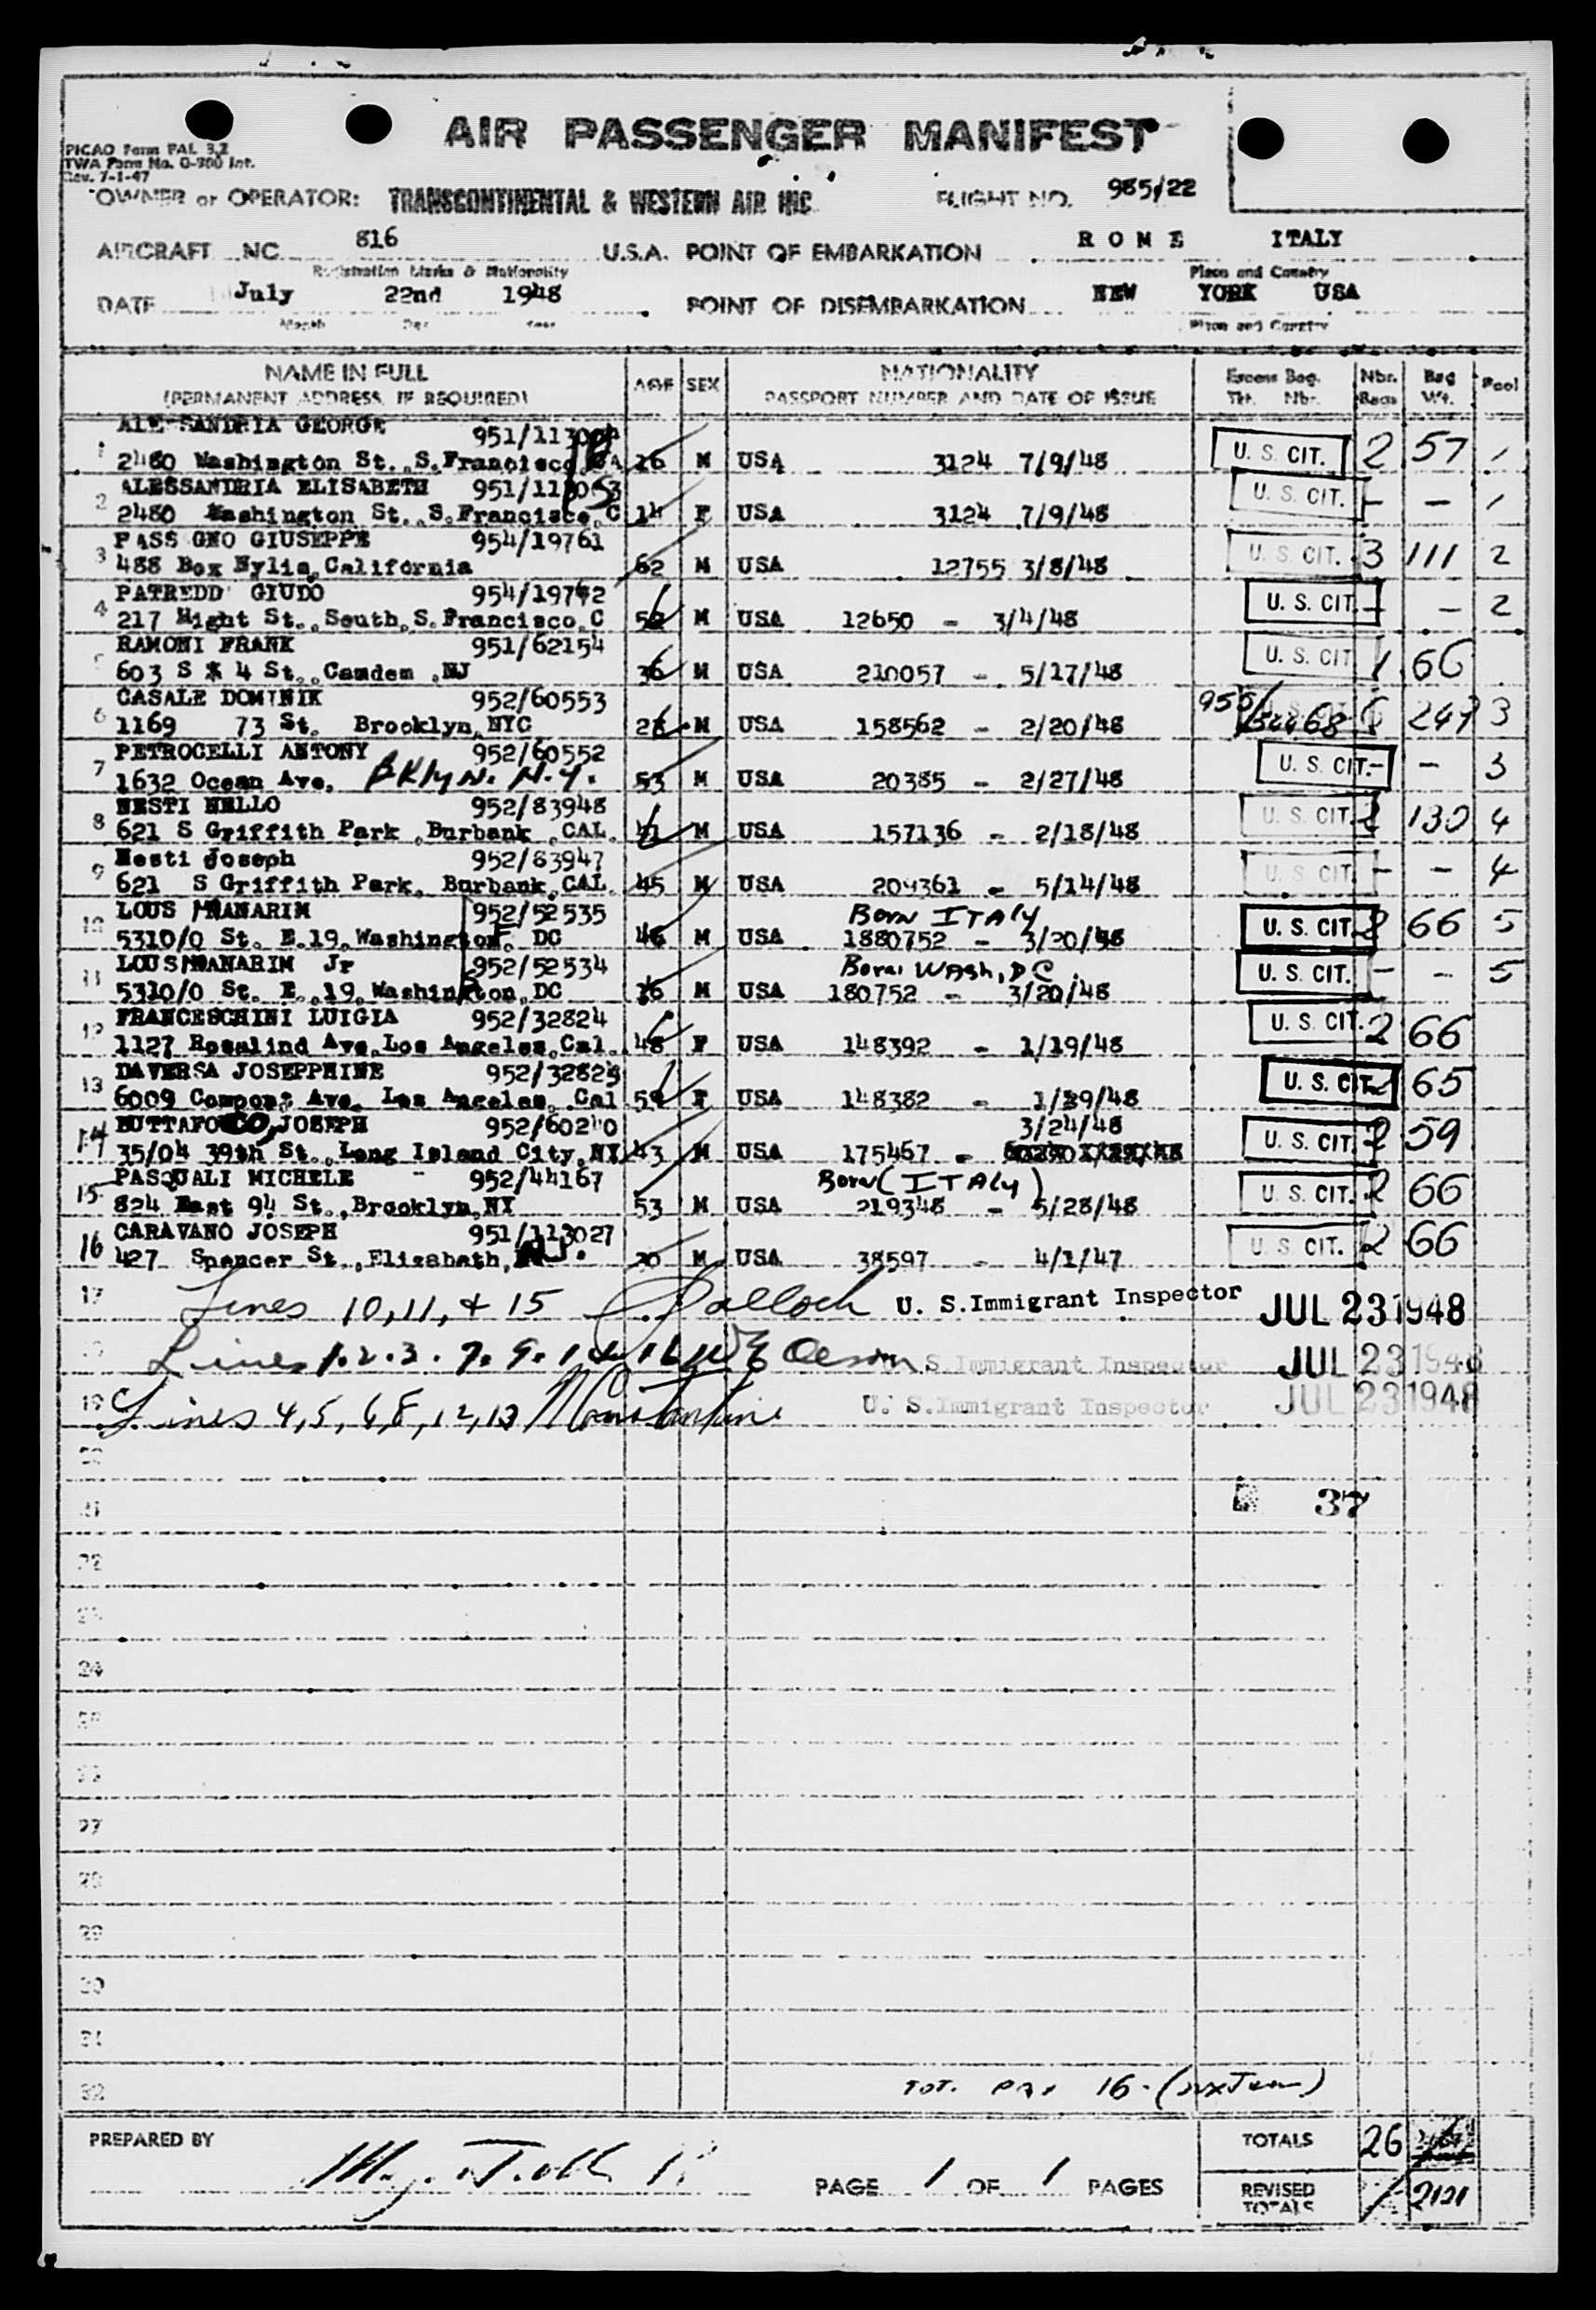 AIR PASSENGER MANIFEST
PICAO Form PAL 3.2
TWA Form No. O-300 Int.
Rev. 7-1-47
OWNER or OPERATOR: TRANSCONTINENTAL & WESTERN AIR INC FLIGHT NO. 985/22
AIRCRAFT NC 816 U.S.A. POINT OF EMBARKATION ROME ITALY
Registration Marks & Nationality Place and Country
DATE July 22nd 1948 POINT OF DISEMBARKATION NEW YORK USA
Month Day Year Place and Country
NAME IN FULL AGE SEX NATIONALITY Excess Bag. Nbr. Bag Pool
(PERMANENT ADDRESS, IF REQUIRED) PASSPORT NUMBER AND DATE OF ISSUE Tkt. Nbr. Bags Wt.
GEORGE
1 2480 Washington St. S.Francisco CA 16 M USA 3124 7/9/48 U. S. CIT. 2 57 1
ALESSANDRIA ELISABETH
2 2480 Washington St. S.Francisco, C 14 F USA 3124 7/9/48 U. S. CIT. - - 1
PASS GNO GIUSEPPE 954/19761
3 488 Box Nylia, California 62 M USA 12755 3/8/48 U. S. CIT. 3 111 2
PATREDD GIUDO
4 217 Hight St. South, S.Francisco, C M USA 12650 - 3/4/48 U. S. CIT. - - 2
RAMONI FRANK 951/62154
603 S 4 St. Camden, NJ 36 M USA 210057 - 5/17/48 U. S. CIT 1 66
CASALE DOMINIK 952/60553
6 1169 73 St. Brooklyn, NYC 28 M USA 158562 - 2/20/48 247 3
PETROCELLI ANTONY 952/60552
7 1632 Ocean Ave. BKlyN. N.Y. 53 M USA 20385 - 2/27/48 U. S. CIT. - - 3
NESTI NELLO 952/83948
8 621 S Griffith Park, Burbank, CAL. M USA 157136 - 2/18/48 U. S. CIT. 2 130 4
Nesti Joseph 952/83947
9 621 S Griffith Park, Burbank, CAL. 45 M USA 209361 - 5/14/48 U. S. CIT. - - 4
LOUS MANARIM 952/52535 Born ITAly
10 5310/0 St. E.19, Washington, DC 46 M USA 1880752 - 3/20/48 U. S. CIT. 66 5
LOUS MANARIM Jr 952/52534 Born WAsh, DC
11 5310/0 St. E. 19, Washington, DC 16 M USA 180752 - 3/20/48 U. S. CIT. - - 5
FRANCESCHINI LUIGIA 952/32824
12 1127 Rosalind Ave, Los Angeles, Cal. 48 F USA 148392 - 1/19/48 U. S. CIT. 2 66
DAVERSA JOSEPPHINE 952/32823
13 6009 Ave. Los Angeles, Cal 59 F USA 148382 - 1/29/48 U. S. CIT. 2 65
BUTTAFOCO, JOSEPH 952/60240 3/24/48
14 35/04 39th St., Long Island City, NY 43 M USA 175467 - U. S. CIT. 2 59
PASQUALI MICHELE - 952/44167 Born (ITAly)
15 824 East 94 St., Brooklyn, NY 53 M USA 219348 - 5/28/48 U. S. CIT. 2 66
CARAVANO JOSEPH 951/113027
16 427 Spencer St., Elizabeth, N.J. 30 M USA 38597 - 4/1/47 U. S. CIT. 2 66
17 Lines 10, 11, & 15 U. S. Immigrant Inspector JUL 23 1948
Lines 1. 2. 3. 7. 9. 14 16 U. S. Immigrant Inspector JUL 23 1948
19 Lines 4, 5, 6, 8, 12, 13 U. S. Immigrant Inspector JUL 23 1948
20
21 37
22
23
24
25
26
27
28
29
30
31
32 TOT. PAX 16 - (sixteen)
PREPARED BY TOTALS 26
PAGE 1 OF 1 PAGES REVISED TOTALS 2121